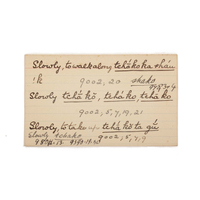 Slowly, to walk along tchákoka shán
!k 9002, 20 shako
Slowly tchá kō, tchá ko, tchá ko
9002, 5, 7, 19, 21
Slowly, to take up tchákō ta gú
slowly tchako 9002, 5, 4, 9